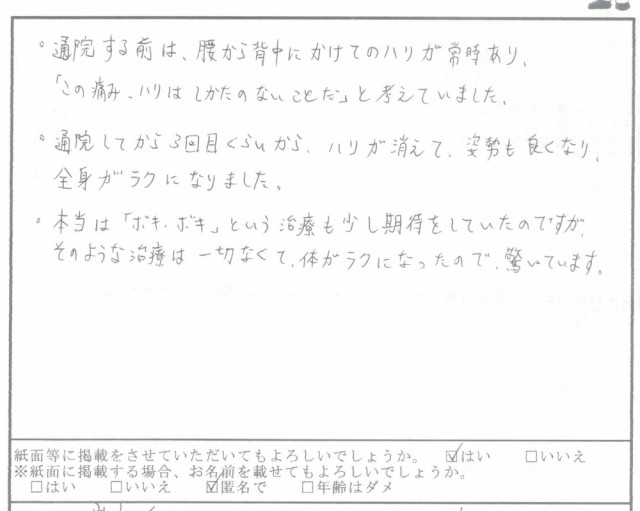 。通院する前は、腰から背中にかけてのハリが常時あり、
「この痛み、ハリはしかたのないことだ」と考えていました。
。通院してから3回目くらいから、ハリが消えて、姿勢も良くなり、
全身がラクになりました。
。本当は「ボキ、ボキ」という治療も少し期待をしていたのですが、
そのような治療は一切なくて、体がラクになったので、驚いています。
紙面等に掲載をさせていただいてもよろしいでしょうか。 ☑はい □いいえ
※紙面に掲載する場合、お名前を載せてもよろしいでしょうか。
□はい □いいえ ☑匿名で □年齢はダメ